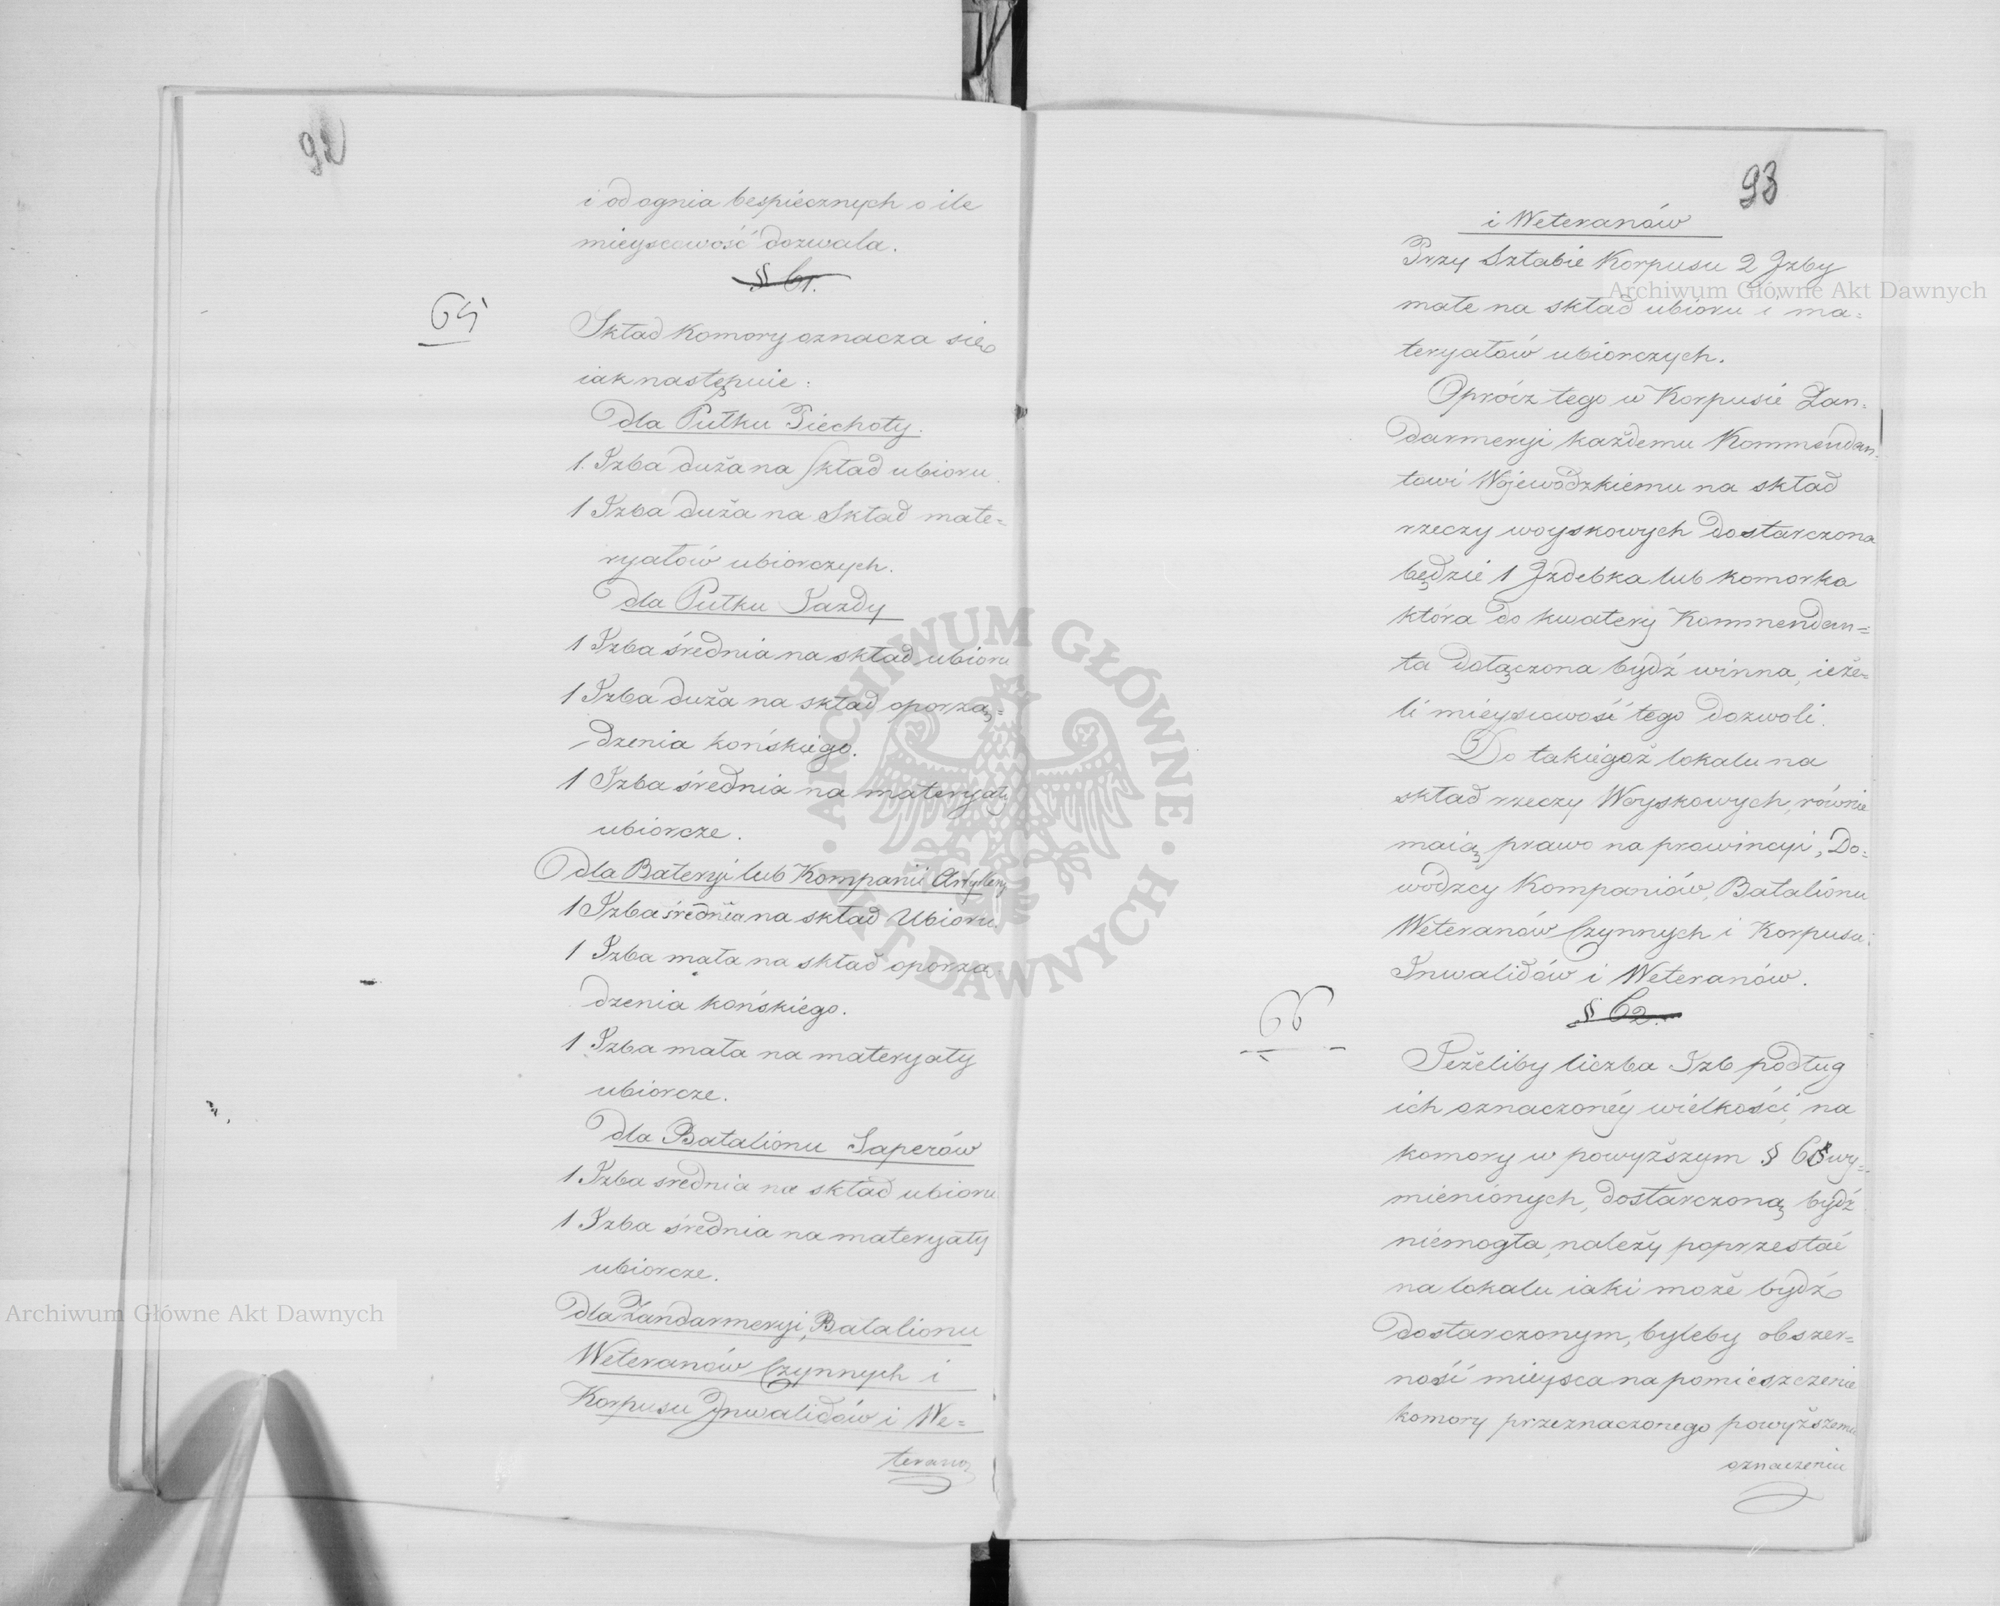 92
i od ognia bespiécznych o ile
mieyscowość dozwala.
§ 61.
65
Skład Komory oznacza się
iak następuie:
dla Pułku Piechoty.
1. Izba duża na skład ubioru.
1 Izba duża na Skład mate=
ryałów ubiorczych.
dla Pułku Jazdy
1 Izba średnia na skład ubioru
1 Izba duża na skład oporzą=
dzenia końskiego.
1 Izba średnia na materyały
ubiorcze.
dla Bateryi lub Kompanii Artyllery
1 Izba średnia na skład Ubioru.
1 Izba mała na skład oporzą
dzenia końskiégo.
1 Izba mała na materyały
ubiorcze.
dla Batalionu Saperów
1 Izba srednia na skład ubioru
1 Izba średnia na materyały
ubiorcze.
dla Żandarmeryi, Batalionu
Weteranów Czynnych i
Korpusu Jnwalidów i We=
teranó
93
i Weteranów
Przy Sztabie Korpusu 2 Jzby
małe na skład ubioru i ma=
teryałów ubiorczych.
Oprócz tego w Korpusié Żan=
darmeryi każdemu Kommendan=
towi Wojewódzkiému na skład
rzeczy woyskowych dostarczona
będzie 1 Jzdebka lub komorka
która do kwatery Kommendan=
ta dołączona bydź winna, ieże=
li mieyscowość tego dozwoli.
Do takiégoż lokalu na
skład rzeczy Woyskowych, równie
maią prawo na prowincyi, Do=
wódzcy Kompaniów, Batalionu
Weteranów Czynnych i Korpusu
Inwalidów i Weteranów.
§ 62.
66
Jeżeliby liczba Izb podług
ich oznaczonéy wielkości, na
komory w powyższym § 65 wy=
mienionych, dostarczoną bydź
niémogła, należy poprzestać
na lokalu iaki może bydź
dostarczonym, byleby obszer=
ność mieysca na pomieszczenie
komory przeznaczonego powyższemu
oznaczeniu
Archiwum Główne Akt Dawnych
Archiwum Główne Akt Dawnych
ARCHIWUM GŁÓWNE AKT DAWNYCH